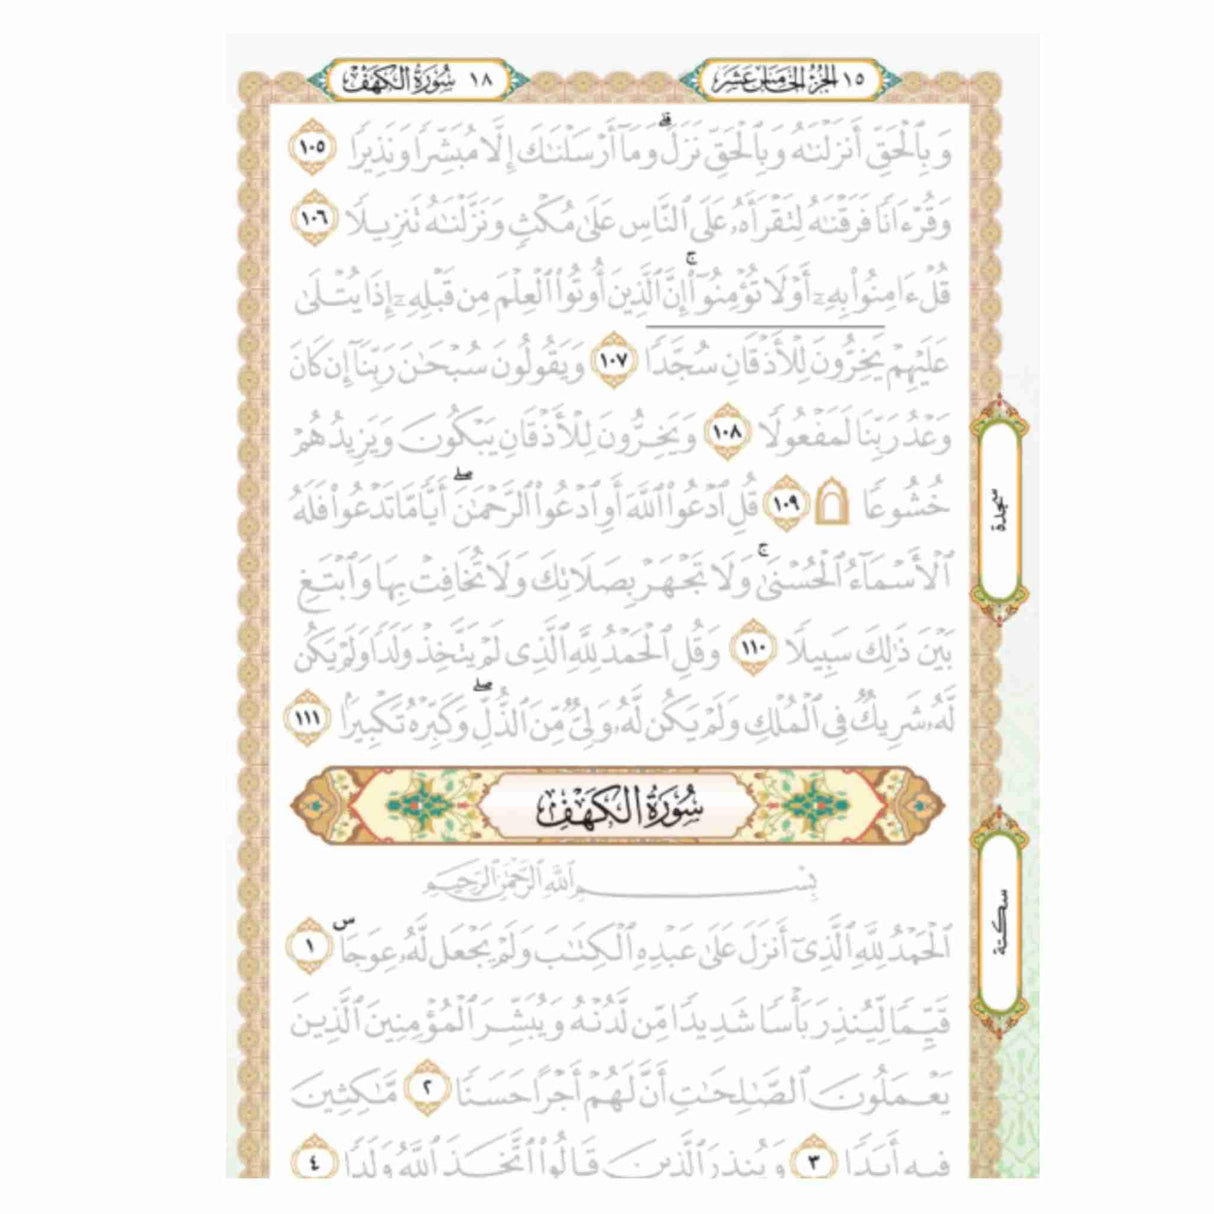 ١٥ الجزء الخامس عشر
١٨ سورة الكهف
وَبِٱلْحَقِّ أَنزَلْنَٰهُ وَبِٱلْحَقِّ نَزَلَ ۗ وَمَآ أَرْسَلْنَٰكَ إِلَّا مُبَشِّرًا وَنَذِيرًا ١٠٥
وَقُرْءَانًا فَرَقْنَٰهُ لِتَقْرَأَهُۥ عَلَى ٱلنَّاسِ عَلَىٰ مُكْثٍ وَنَزَّلْنَٰهُ تَنزِيلًا ١٠٦
قُلْ ءَامِنُوا۟ بِهِۦٓ أَوْ لَا تُؤْمِنُوٓا۟ ۚ إِنَّ ٱلَّذِينَ أُوتُوا۟ ٱلْعِلْمَ مِن قَبْلِهِۦٓ إِذَا يُتْلَىٰ
عَلَيْهِمْ يَخِرُّونَ لِلْأَذْقَانِ سُجَّدًا ١٠٧ وَيَقُولُونَ سُبْحَٰنَ رَبِّنَآ إِن كَانَ
وَعْدُ رَبِّنَا لَمَفْعُولًا ١٠٨ وَيَخِرُّونَ لِلْأَذْقَانِ يَبْكُونَ وَيَزِيدُهُمْ
خُشُوعًا ۩ ١٠٩ قُلِ ٱدْعُوا۟ ٱللَّهَ أَوِ ٱدْعُوا۟ ٱلرَّحْمَٰنَ ۖ أَيًّا مَّا تَدْعُوا۟ فَلَهُ
سجدة
ٱلْأَسْمَآءُ ٱلْحُسْنَىٰ ۚ وَلَا تَجْهَرْ بِصَلَاتِكَ وَلَا تُخَافِتْ بِهَا وَٱبْتَغِ
بَيْنَ ذَٰلِكَ سَبِيلًا ١١٠ وَقُلِ ٱلْحَمْدُ لِلَّهِ ٱلَّذِى لَمْ يَتَّخِذْ وَلَدًا وَلَمْ يَكُن
لَّهُۥ شَرِيكٌ فِى ٱلْمُلْكِ وَلَمْ يَكُن لَّهُۥ وَلِىٌّ مِّنَ ٱلذُّلِّ ۖ وَكَبِّرْهُ تَكْبِيرًۢا ١١١
سُورَةُ الكَهْفِ
بِسْمِ ٱللَّهِ ٱلرَّحْمَٰنِ ٱلرَّحِيمِ
ٱلْحَمْدُ لِلَّهِ ٱلَّذِىٓ أَنزَلَ عَلَىٰ عَبْدِهِ ٱلْكِتَٰبَ وَلَمْ يَجْعَل لَّهُۥ عِوَجَا ۜ ١
سكتة
قَيِّمًا لِّيُنذِرَ بَأْسًا شَدِيدًا مِّن لَّدُنْهُ وَيُبَشِّرَ ٱلْمُؤْمِنِينَ ٱلَّذِينَ
يَعْمَلُونَ ٱلصَّٰلِحَٰتِ أَنَّ لَهُمْ أَجْرًا حَسَنًا ٢ مَّٰكِثِينَ
فِيهِ أَبَدًا ٣ وَيُنذِرَ ٱلَّذِينَ قَالُوا۟ ٱتَّخَذَ ٱللَّهُ وَلَدًا ٤